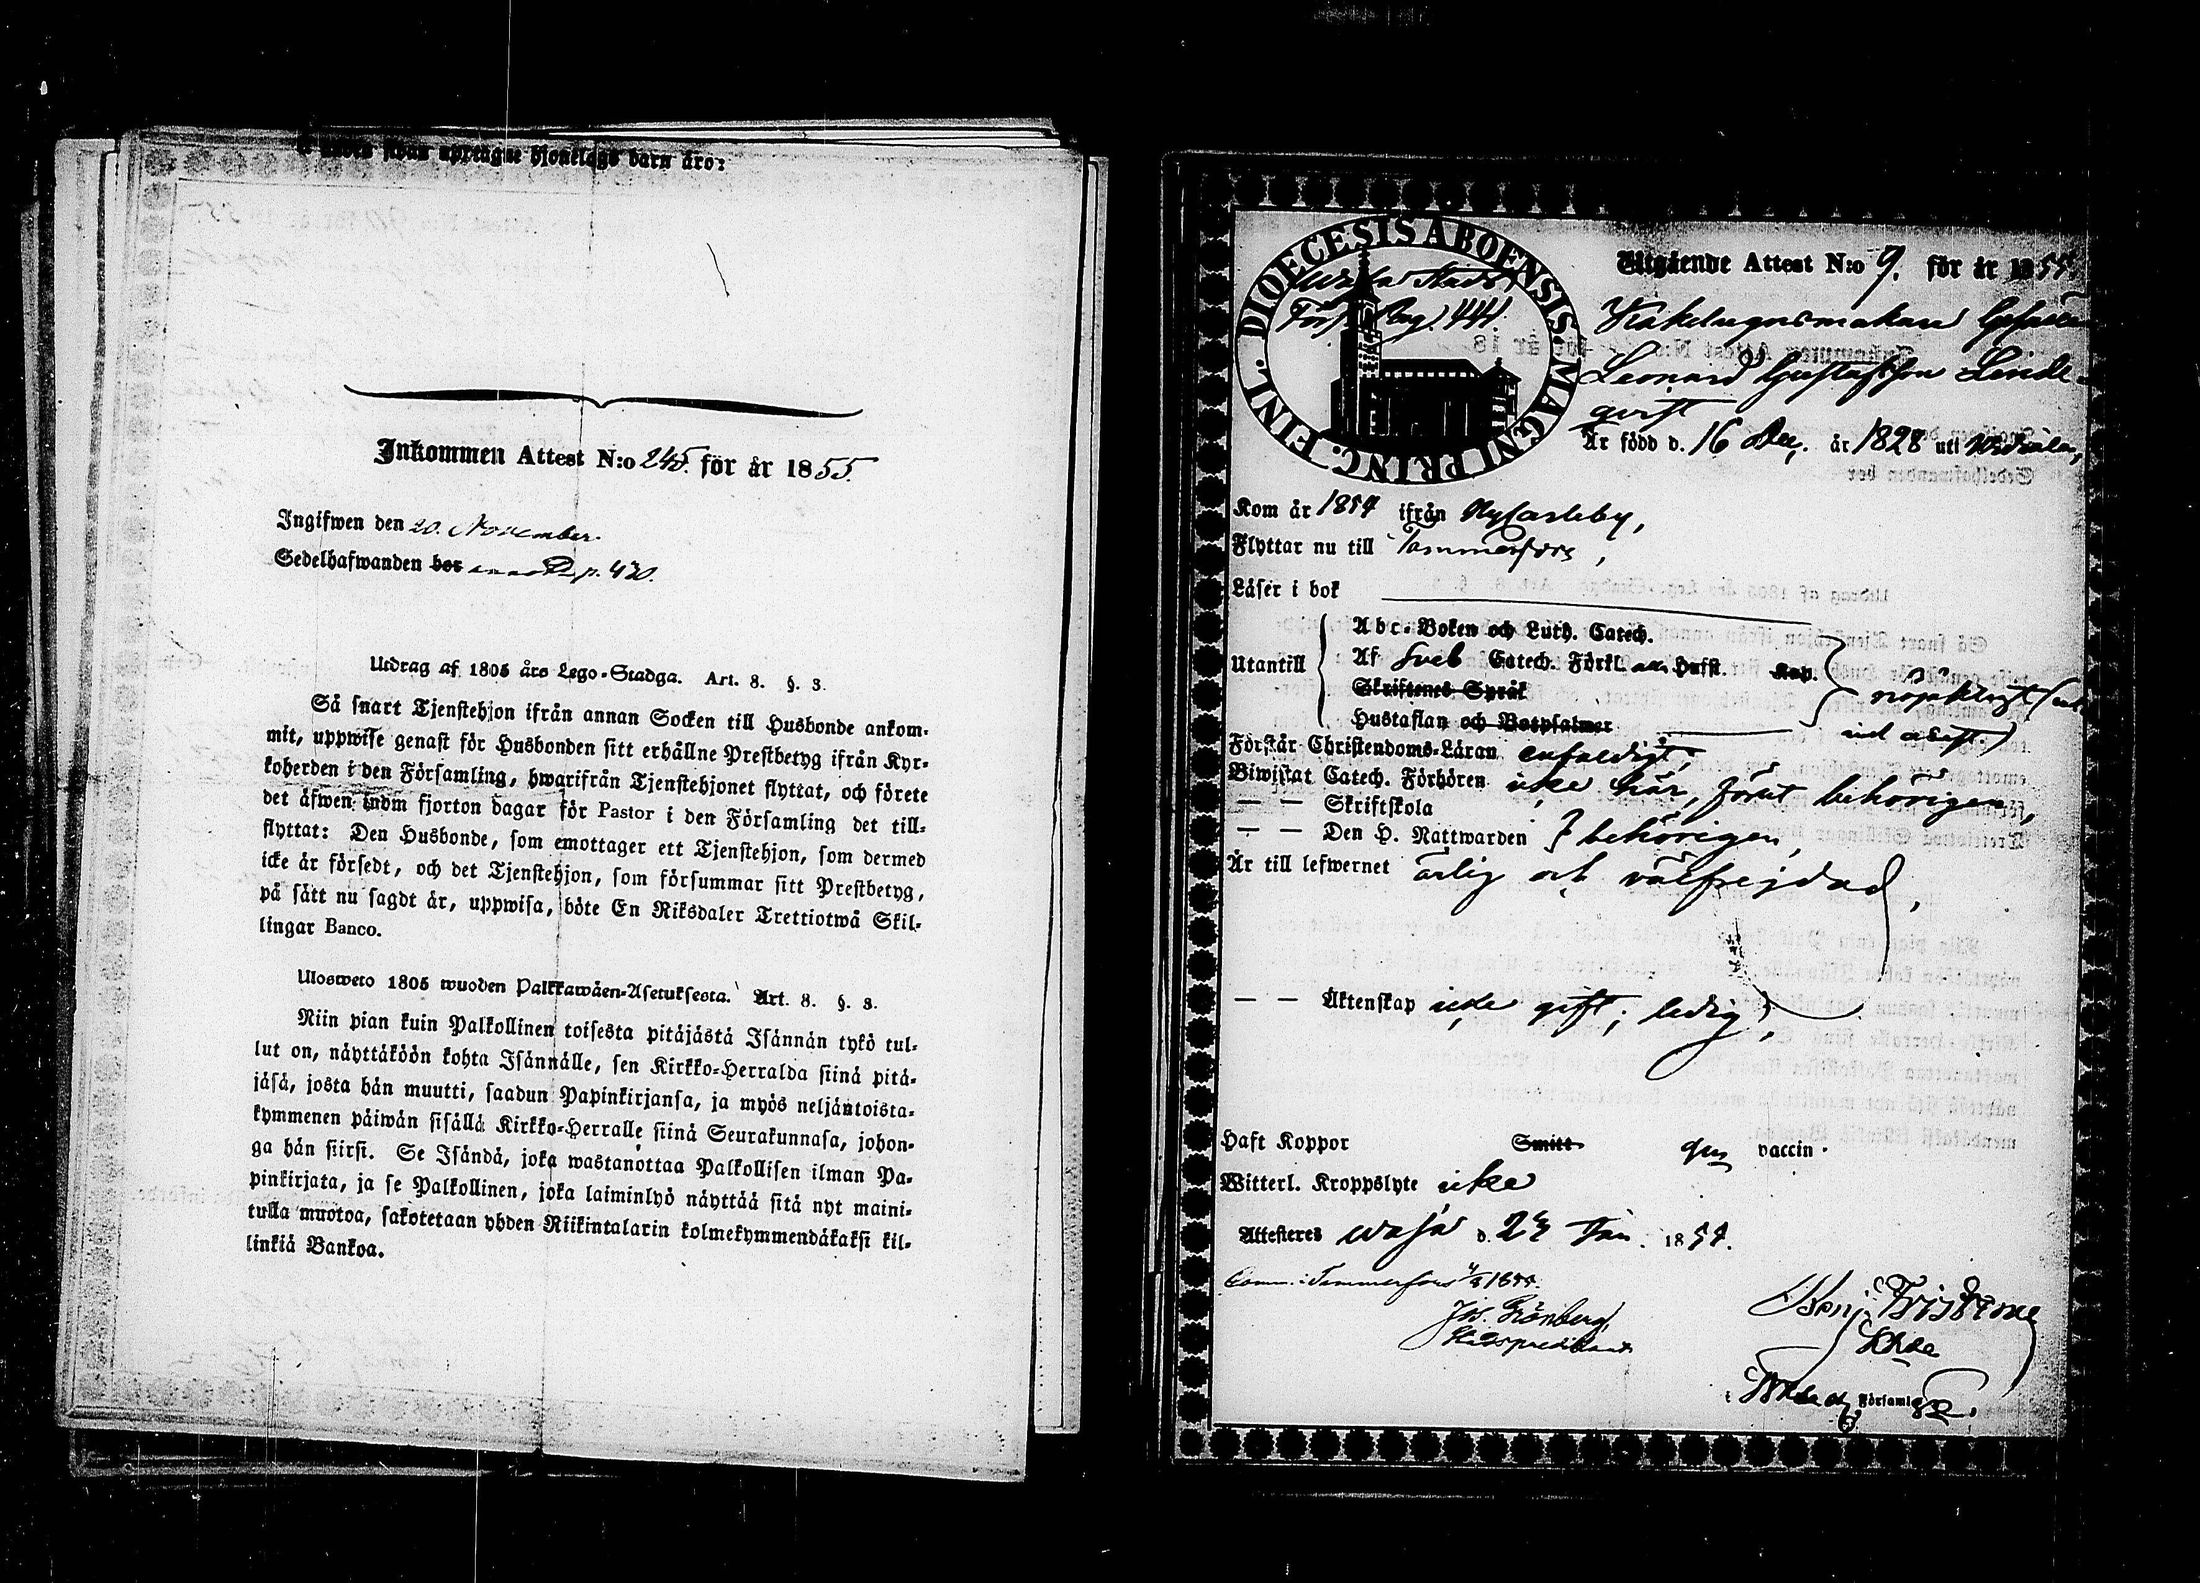 upptagne hjonelags barn äro:
Inkommen Attest N:o 245. för år 1855.
Ingifwen den 20. November.
Sedelhafwanden bor p. 420.
Utdrag af 1805 års Lego-Stadga. Art. 8. §. 3.
Så snart Tjenstehjon ifrån annan Socken till Husbonde ankom-
mit, uppwise genast för Husbonden sitt erhållne Prestbetyg ifrån Kyr-
koherden i den Församling, hwarifrån Tjenstehjonet flyttat, och förete
det äfwen inom fjorton dagar för Pastor i den Församling det till-
flyttat: Den Husbonde, som emottager ett Tjenstehjon, som dermed
icke är försedt, och det Tjenstehjon, som försummar sitt Prestbetyg,
på sätt nu sagdt är, uppwisa, böte En Riksdaler Trettiotwå Skil-
lingar Banco.
Ulosweto 1805 wuoden Palkkawäen-Asetuksesta. Art. 8. §. 3.
Niin pian kuin Palkollinen toisesta pitäjästä Isännän tykö tul-
lut on, näyttäköön kohta Isännälle, sen Kirkko-Herralda siinä pitä-
jäsä, josta hän muutti, saadun Papinkirjansa, ja myös neljäntoista-
kymmenen päiwän sisällä Kirkko-Herralle siinä Seurakunnasa, johon-
ga hän siirsi. Se Isändä, joka wastanottaa Palkollisen ilman Pa-
pinkirjata, ja se Palkollinen, joka laiminlyö näyttää sitä nyt maini-
tulla muotoa, sakotetaan yhden Riikintalarin kolmekymmendäkaksi kil-
linkiä Bankoa.
DIOECESIS ABOENSIS MAGNI PRINC. FINL.
Wasa Stads
Förs. pag. 444.
Utgående Attest N:o 9. för år 1855.
Kakelugnsmakare Gesällen
Leonard Gustafsson Linde-
qvist
Är född d. 16 Dec. år 1828 uti
Kom år 1854 ifrån Nycarleby,
Flyttar nu till Tammerfors,
Läser i bok
Utantill
Abc-Boken och Luth. Catech.
Af Sveb Catech. Förkl. Hufst. Kap.
Skriftenes Språk
Hustaflan och Botpsalmer
nöjaktigt
Förstår Christendoms-Läran enfaldigt,
Biwistat Catech. Förhören icke här, förut behörigen,
— — Skriftskola
— — Den H. Nattwarden } behörigen,
Är till lefwernet ärlig och välfrejdad,
— — Äktenskap icke gift; ledig,
Haft Koppor Smitt gm vaccin.
Witterl. Kroppslyte icke
Attesteres Wasa d. 24 Jan. 1854.
Comm. i Tammerfors
Jos. Grönberg,
Stadspredikant
i Församl.